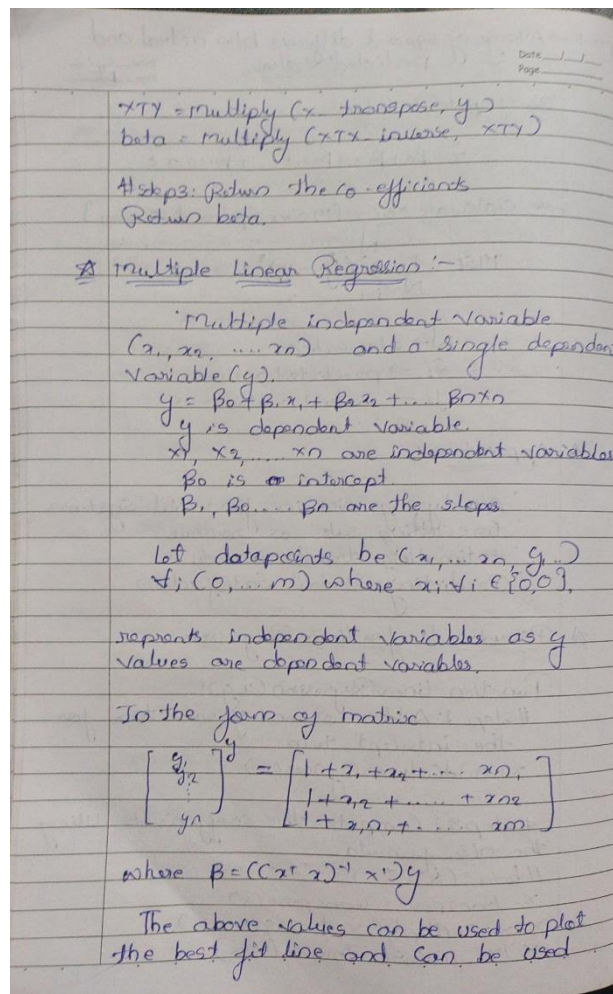 Date / /
Page
XTY = multiply (x_transpose, y)
beta = multiply (XTX_inverse, XTY)
# step3: Return the co-efficients
Return beta.
Multiple Linear Regression :-
Multiple independent variable
(x1, x2, ..... xn) and a single dependen
variable (y).
y = β0 + β1x1 + β2x2 + ..... βnxn
y is dependent variable.
x1, x2, ..... xn are independent variables
β0 is intercept.
β1, β0 .... βn are the slopes
Let datapoints be (x1, ... xn, y ..)
∀i (0, ... m) where xi ∀i ∈ {0,0},
reprents independent variables as y
values are dependent variables.
In the form of matrix
[ y1 ]y = [ 1 + x1 + x2 + .... xn1
y2 1 + x12 + ...... + xn2
⋮
yn ] 1 + x1n + ..... xm ]
where β = ((xT x)-1 x')y
The above values can be used to plot
the best fit line and can be used